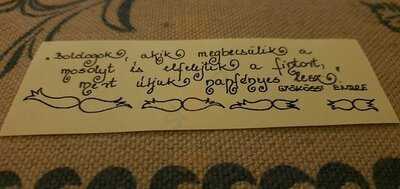 "Boldogok, akik megbecsülik a
mosolyt és elfelejtik a fintort,
mert útjuk napfényes lesz."
GYÖKÖSSY ENDRE